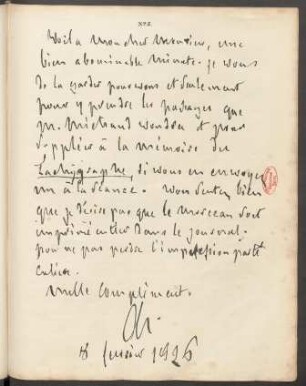 Voilà mon cher monsieur, une
bien abominable minute. je vous
de la garder pour vous et seulement
pour y prendre les passages que
M. Michaud voudra et pour
suppléer à la mémoire du
Tachygraphe, si vous en envoyez
un à la séance. vous sentez bien
que je désire pas que le morceau soit
imprimé entier dans le journal.
pour ne pas nuire à l'impression
entière.
mille compliments.
Ch.
18 1826